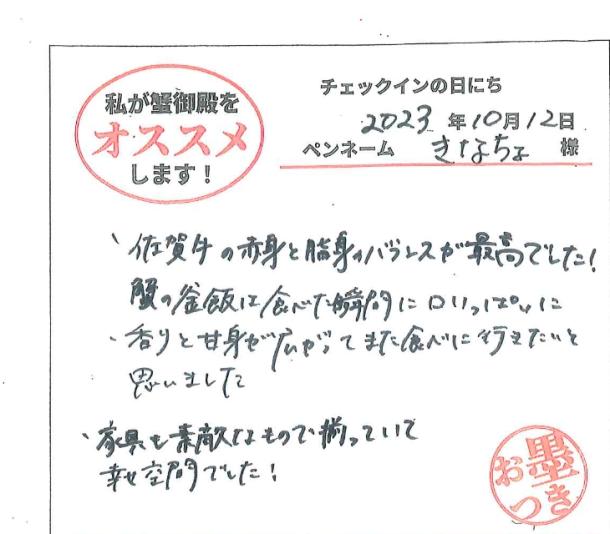 私が蟹御殿を
オススメ
します!
チェックインの日にち
2023年10月12日
ペンネーム きなちょ 様
、佐賀牛の赤身と脂身のバランスが最高でした!
蟹の釜飯は食べた瞬間に口いっぱいに
・香りと甘身が広がってまた食べに行きたいと
思いました
、家具も素敵なもので揃っていて
幸せ空間でした!
お墨
つき